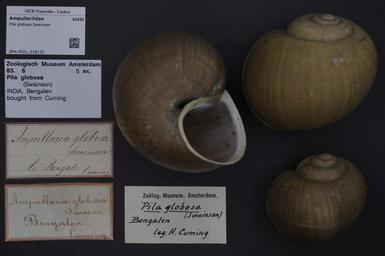 NCB Naturalis - Leiden
Ampullariidae
Pila globosa Swainson
ZMA.MOLL.318133
Zoologisch Museum Amsterdam
83. 6 5 ex.
Pila globosa
(Swainson)
INDIA, Bengalen
bought from Cuming
Ampullaria globosa
Swainson
Bengale
Cuming
Ampullaria globosa
Swains
Bengalen
Cuming
Zoölog. Museum. Amsterdam.
Pila globosa
(Swainson)
Bengalen
leg. H. Cuming